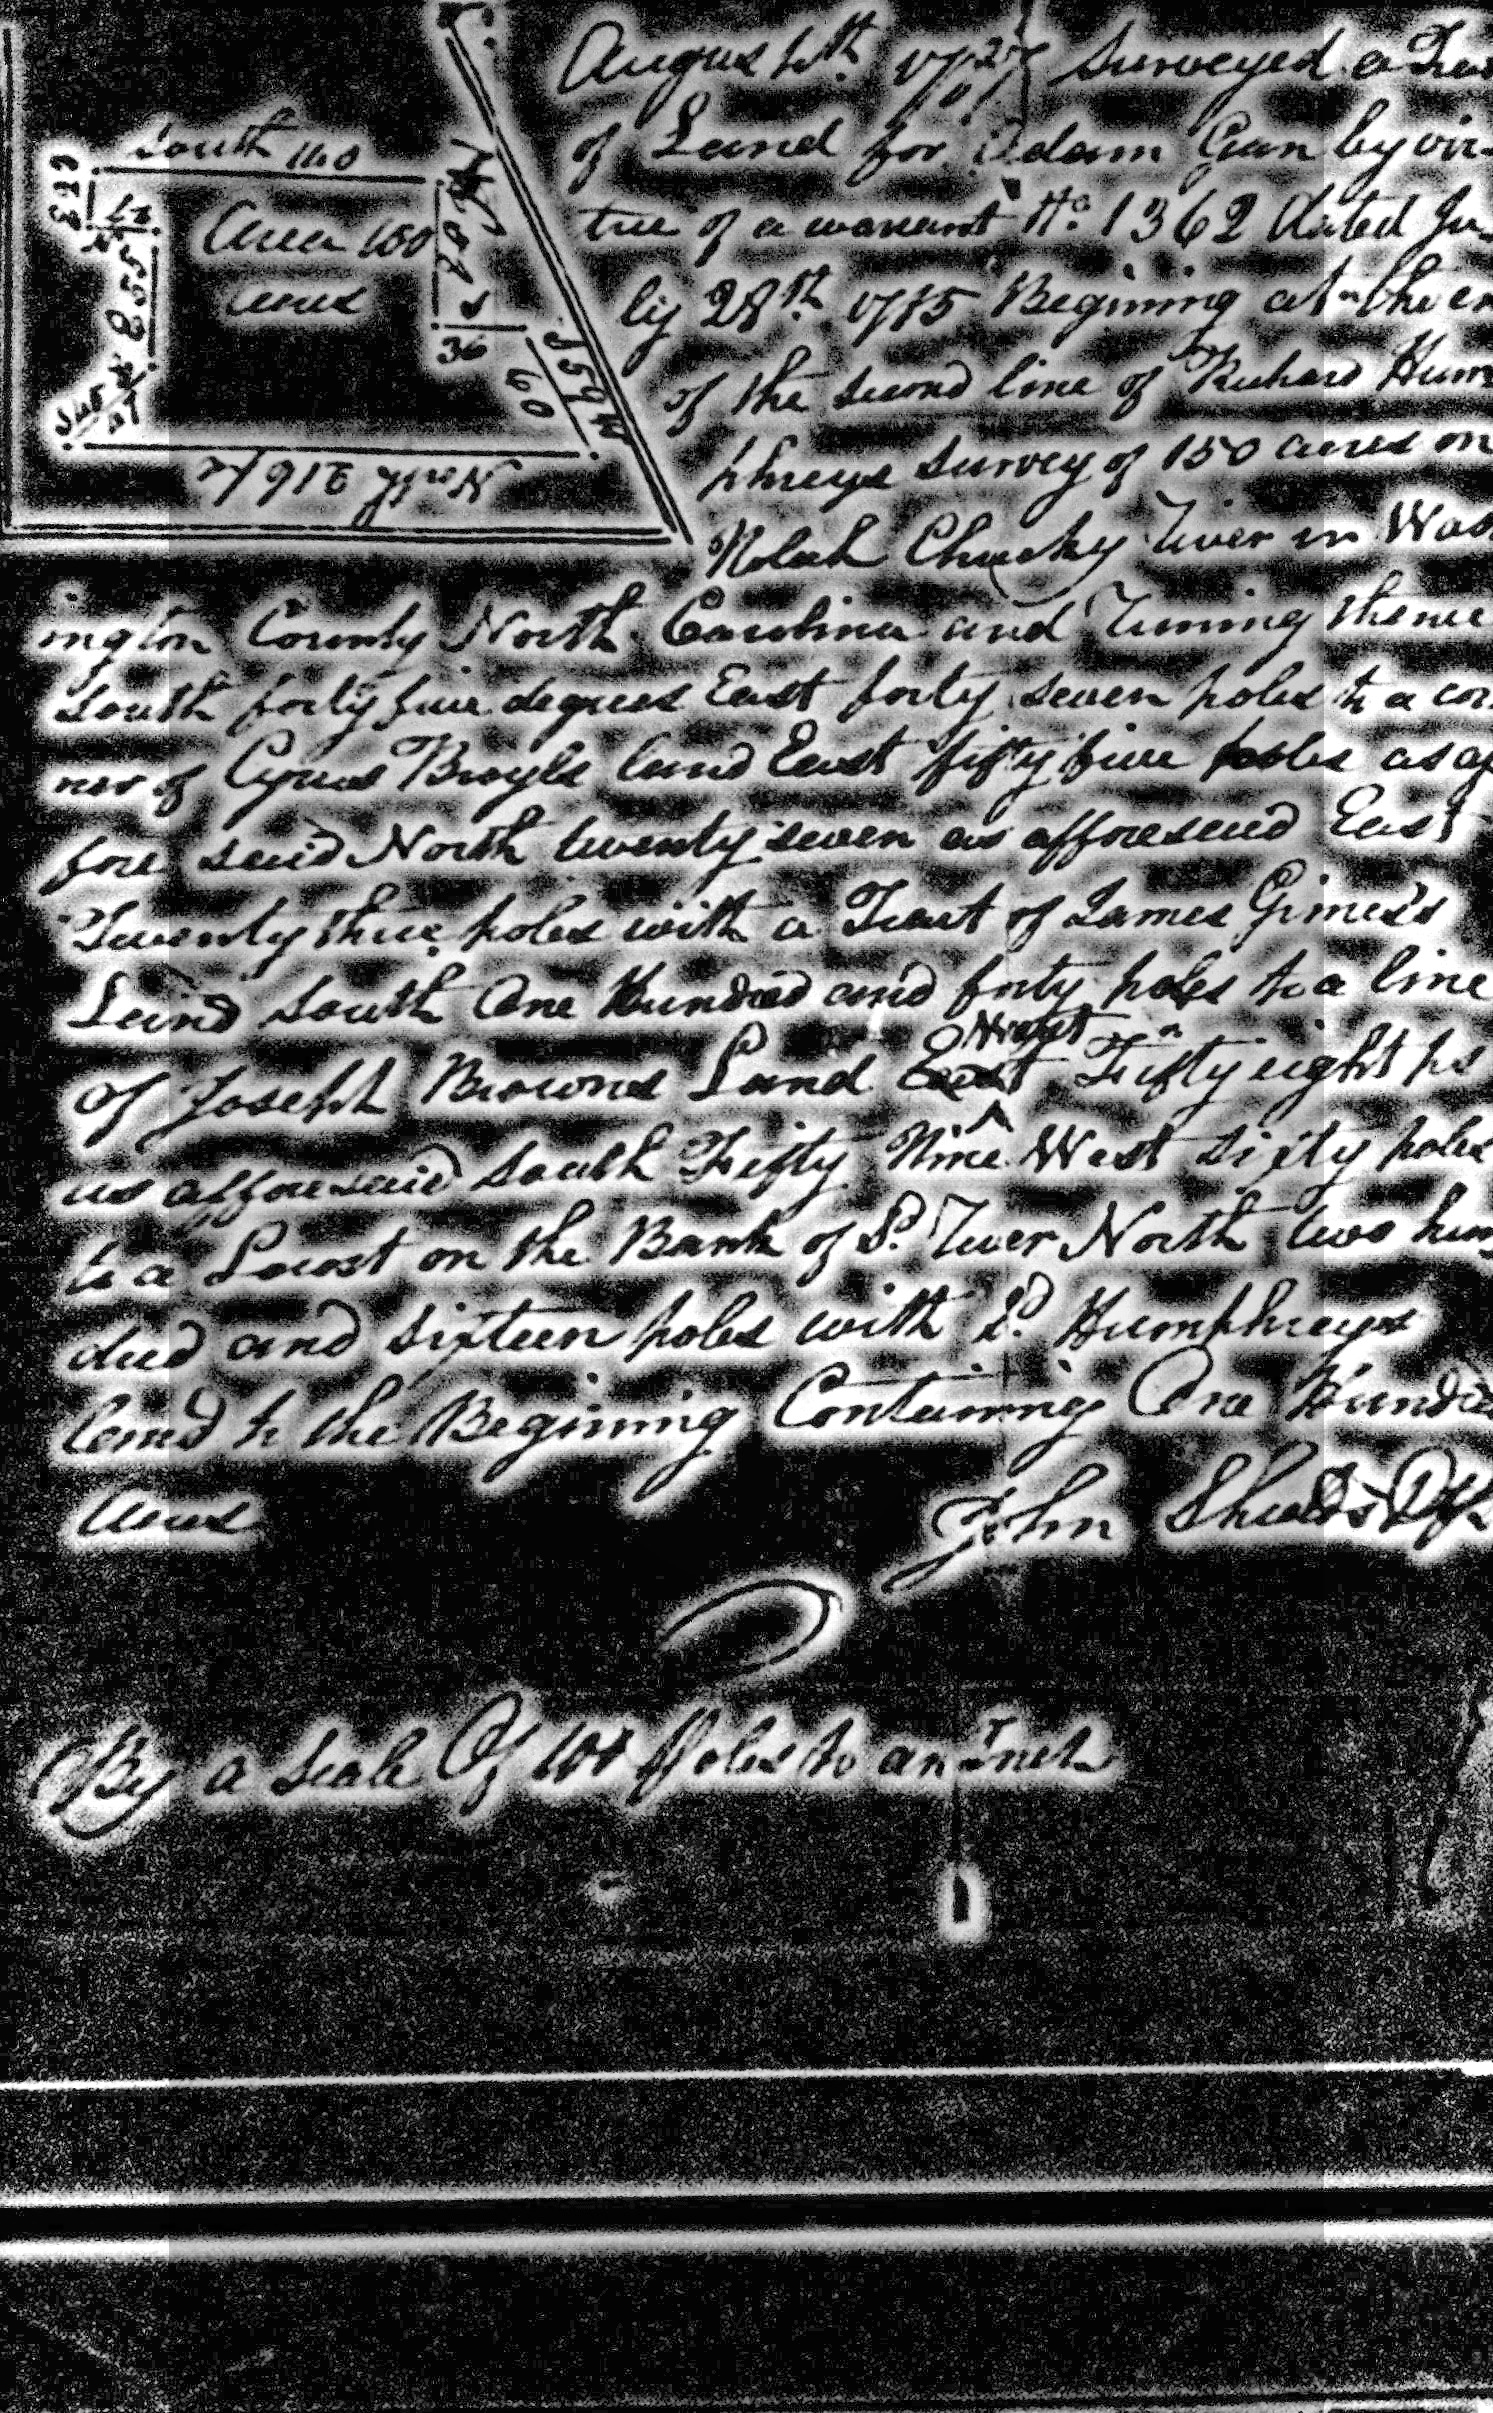 South 140
Area 100
acres
36
60
North 216
August 4th Surveyed a Trac
of Land for Adam Gan by vir-
tue of a warrant No. 1362 dated Ju-
ly 28th 1785 Begining at the en
of the second line of Richard Hum
phreys survey of 150 acres on
Nolah Chucky River in Was
ington County North Carolina and Runing thence
South forty five degrees East forty seven poles to a cor
ner of Cyrus Broyls land East fifty five poles as af
fore said North twenty seven as afforesaid East
Twenty three poles with a Tract of James Gimes's
Land South One Hundred and forty poles to a line
of Joseph Browns Land East West Fifty eight ps
as afforesaid South Fifty Nine West sixty poles
to a Locost on the Bank of Sd. River North two hun
dred and sixteen poles with Sd. Humphreys
land to the Begining Containing One Hundred
Acres
John Shields
By a Scale Of 100 Poles to an Inch